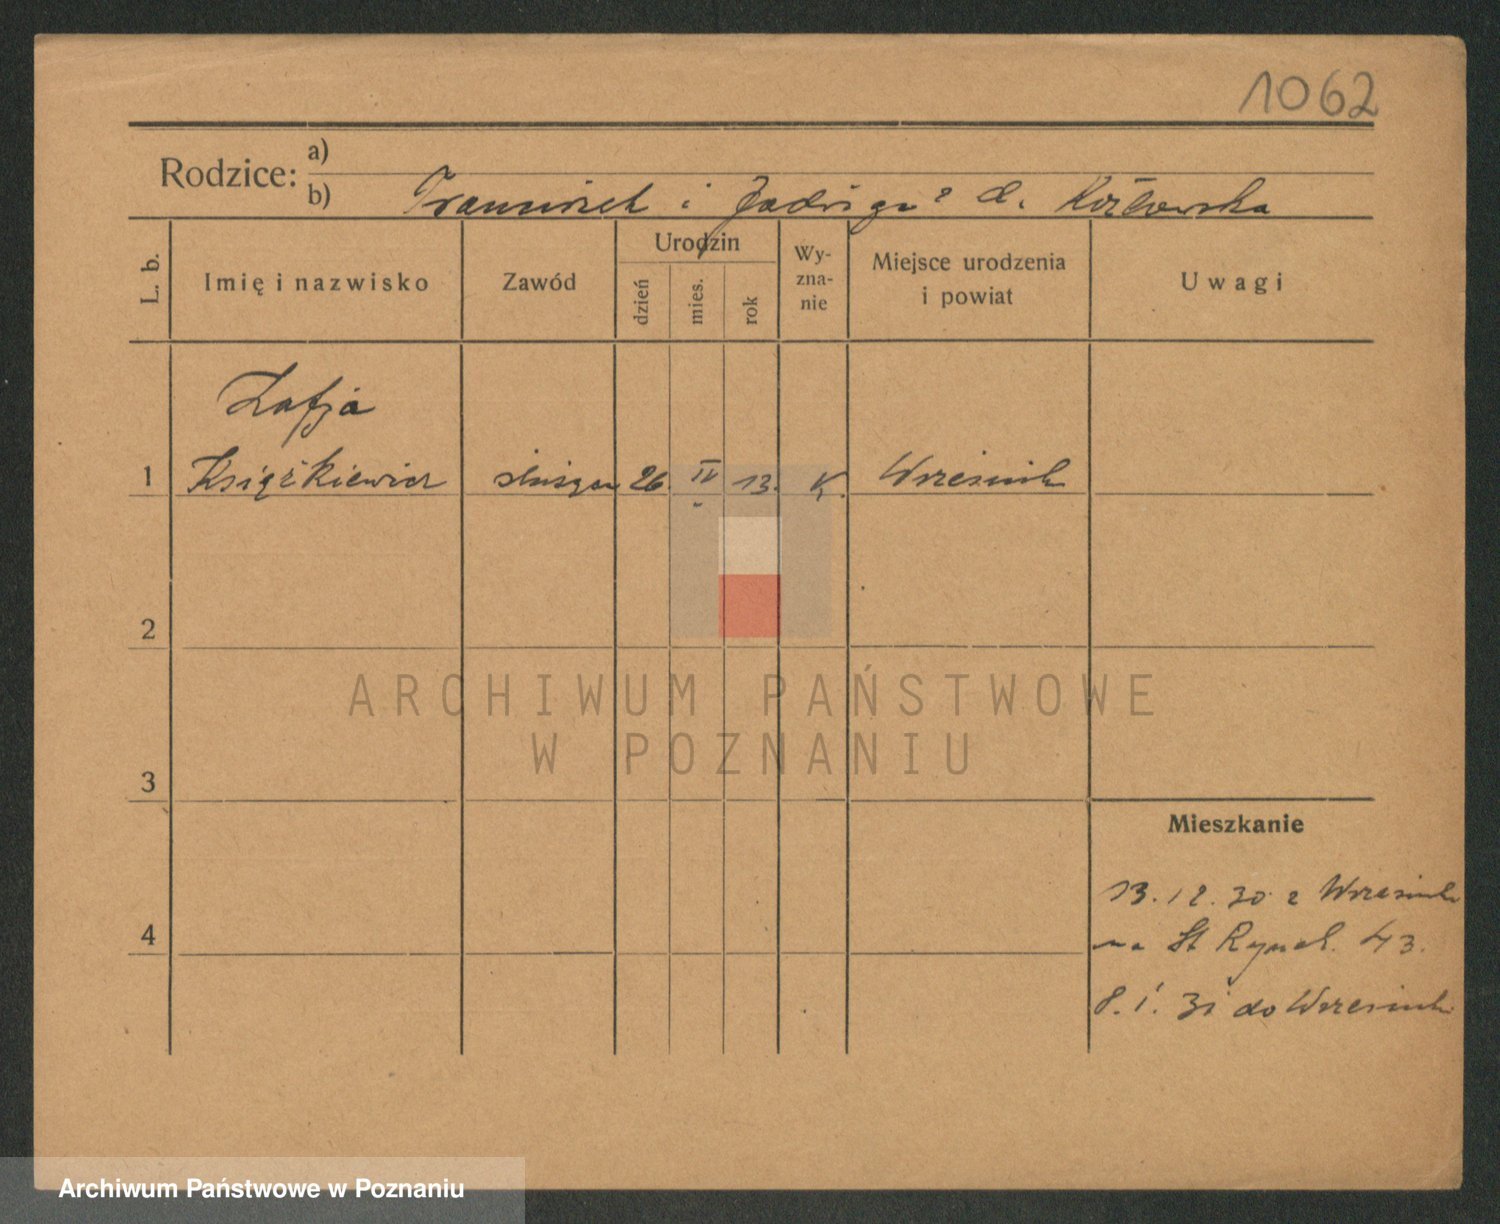 1062
Rodzice: a)
b) Franciszek i Jadwiga z d. Kozłowska
L. b.
Imię i nazwisko
Zawód
Urodzin
dzień
mies.
rok
Wy-
zna-
nie
Miejsce urodzenia
i powiat
Uwagi
Zofja
1 Książkiewicz służąca 26. IV 13. K.
2
3
4
Mieszkanie
13.12.30 z
na St Rynek. 43.
8. I. 31 do
ARCHIWUM PAŃSTWOWE
W POZNANIU
Archiwum Państwowe w Poznaniu